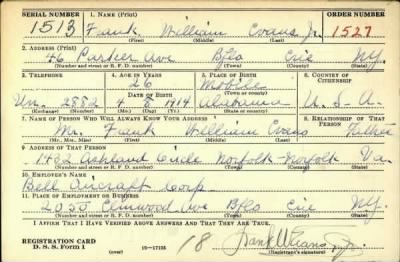 SERIAL NUMBER 1. NAME (Print) ORDER NUMBER
1513 Frank William Evans Jr. 1527
(First) (Middle) (Last)
2. ADDRESS (Print)
46 Parker Ave Bflo Erie N.Y.
(Number and street or R. F. D. number) (Town) (County) (State)
3. TELEPHONE 4. AGE IN YEARS 5. PLACE OF BIRTH 6. COUNTRY OF CITIZENSHIP
26 Mobile
DATE OF BIRTH (Town or county)
Un. 2882 4 8 1914 Alabama U.S.A.
(Exchange) (Number) (Mo.) (Day) (Yr.) (State or country)
7. NAME OF PERSON WHO WILL ALWAYS KNOW YOUR ADDRESS 8. RELATIONSHIP OF THAT PERSON
Mr. Frank William Evans Father
(Mr., Mrs., Miss) (First) (Middle) (Last)
9. ADDRESS OF THAT PERSON
1432 Ashland Circle Norfolk Norfolk Va.
(Number and street or R. F. D. number) (Town) (County) (State)
10. EMPLOYER'S NAME
Bell Aircraft Corp
11. PLACE OF EMPLOYMENT OR BUSINESS
2050 Elmwood Ave Bflo Erie N.Y.
(Number and street or R. F. D. number) (Town) (County) (State)
I AFFIRM THAT I HAVE VERIFIED ABOVE ANSWERS AND THAT THEY ARE TRUE.
REGISTRATION CARD
D. S. S. Form 1 (over) 16—17105 18 Frank W Evans Jr.
(Registrant's signature)